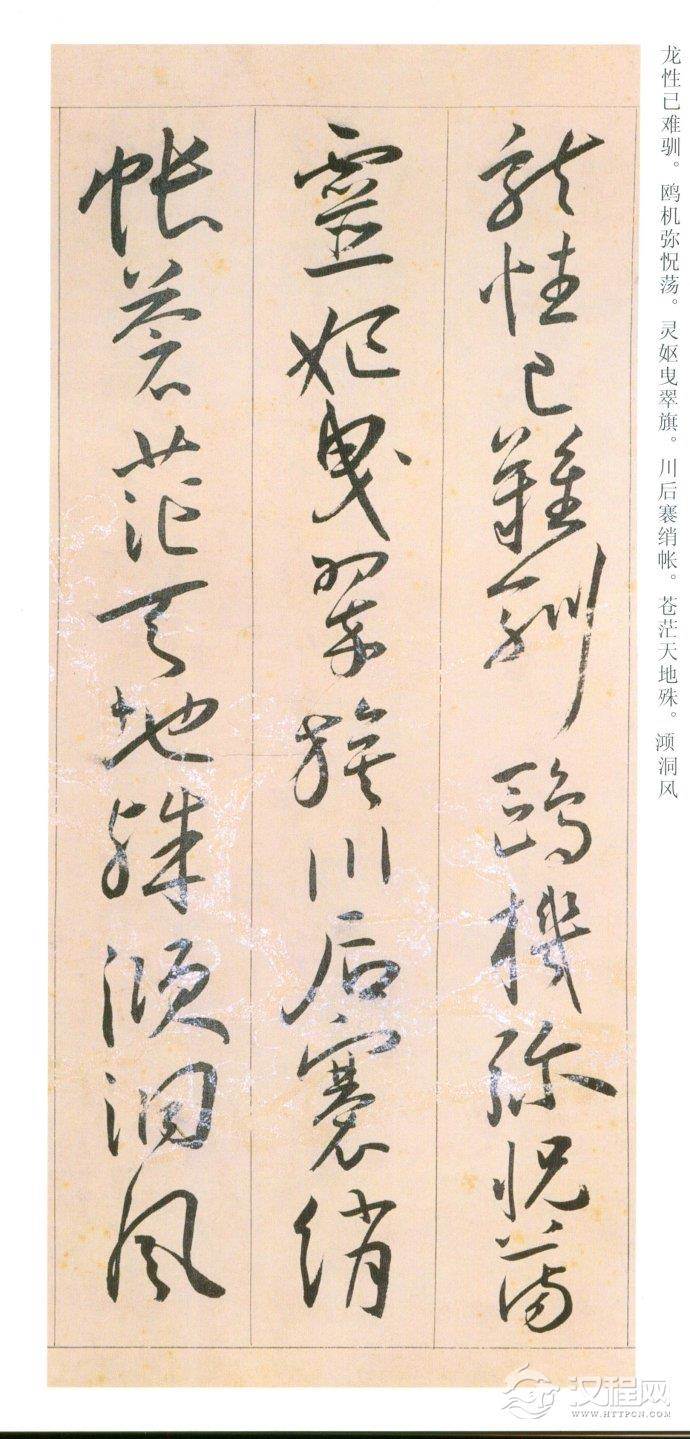 龙性已难驯。鸥机弥怳荡。灵妪曳翠旗。川后褰绡帐。苍茫天地殊。澒洞风
龙性已難馴鷗機弥怳蕩
靈妪曳翠旗川后褰绡
帐蒼茫天地殊澒洞風
汉程网
WWW.HTTPCN.COM